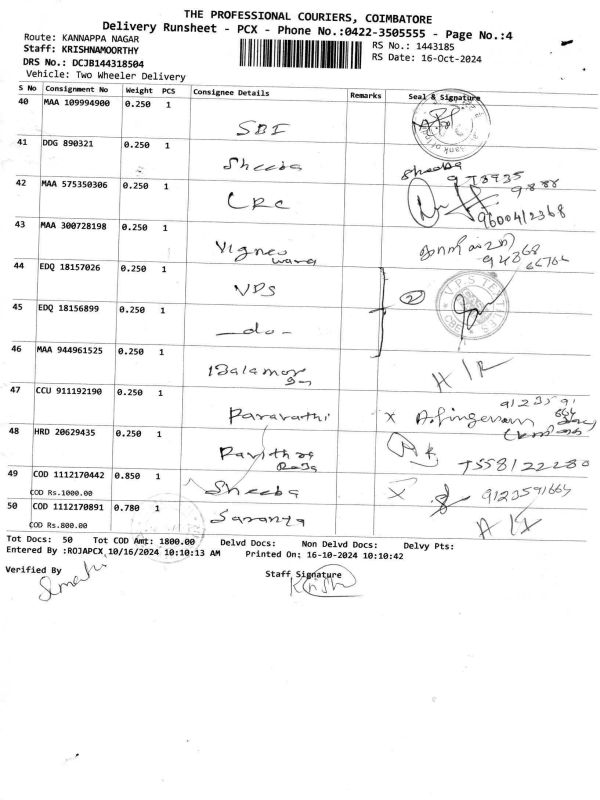 THE PROFESSIONAL COURIERS, COIMBATORE
Delivery Runsheet - PCX - Phone No.:0422-3505555 - Page No.:4
Route: KANNAPPA NAGAR
Staff: KRISHNAMOORTHY
RS No.: 1443185
DRS No.: DCJB144318504
RS Date: 16-Oct-2024
Vehicle: Two Wheeler Delivery
S No Consignment No Weight PCS Consignee Details Remarks Seal & Signature
40 MAA 109994900 0.250 1 SBI
41 DDG 890321 0.250 1 Sheeba Sheeba
42 MAA 575350306 0.250 1 CRC 9600412368
43 MAA 300728198 0.250 1 Vignes
wara
44 EDQ 18157026 0.250 1 VPS 2
45 EDQ 18156899 0.250 1 —do—
46 MAA 944961525 0.250 1 Balamor
47 CCU 911192190 0.250 1 Paravathi X
48 HRD 20629435 0.250 1 Pavithra
49 COD 1112170442 0.850 1 Sheeba X 9123591664
COD Rs.1000.00
50 COD 1112170891 0.780 1 Saranya
COD Rs.800.00
Tot Docs: 50 Tot COD Amt: 1800.00 Delvd Docs: Non Delvd Docs: Delvy Pts:
Entered By :ROJAPCX 10/16/2024 10:10:13 AM Printed On: 16-10-2024 10:10:42
Verified By
Staff Signature
Krish